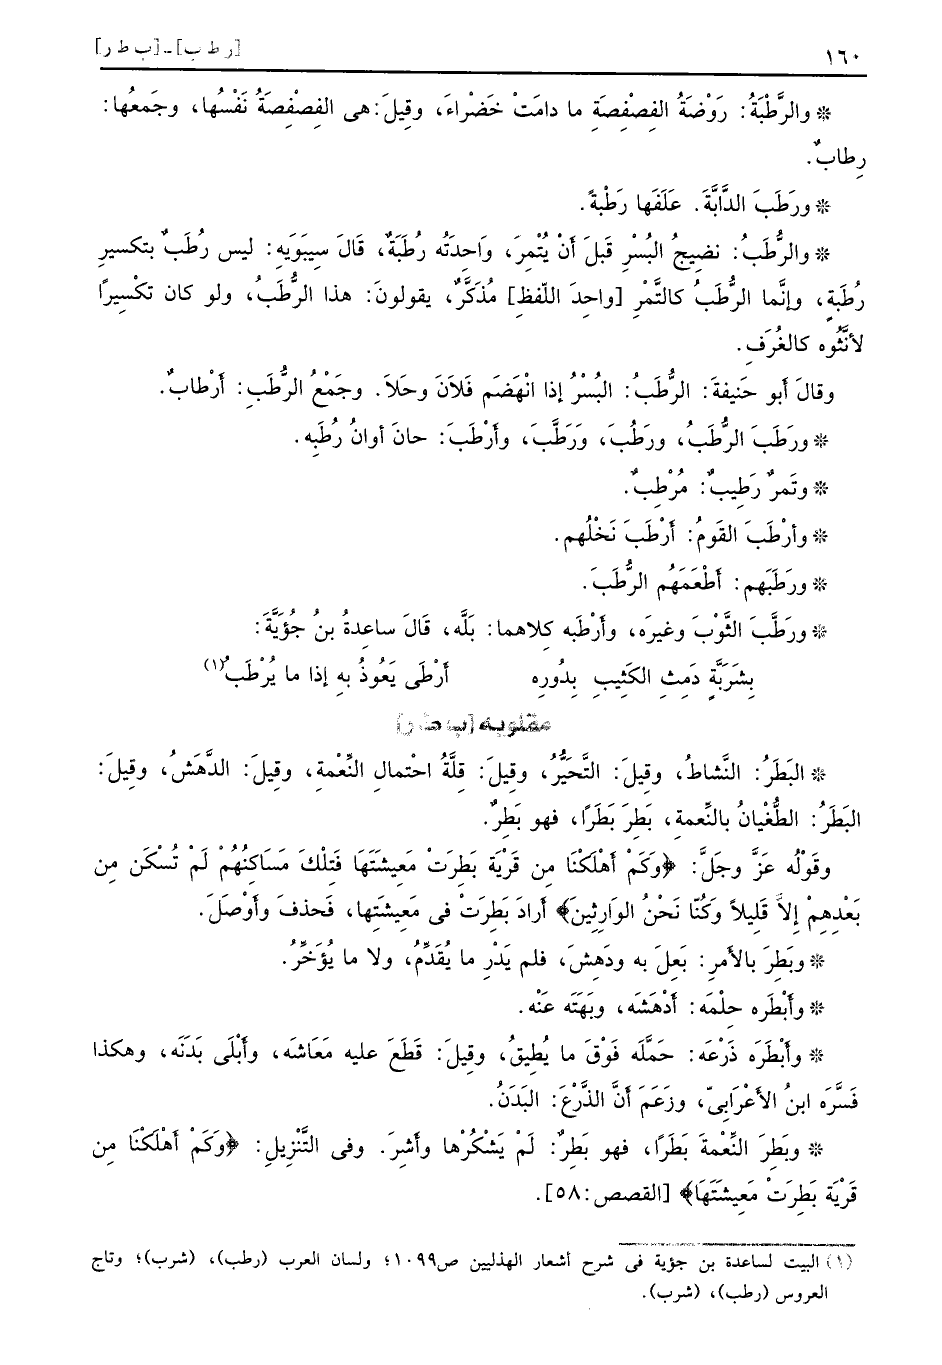 ١٦٠ [ر ط ب] - [ب ط ر]
* والرَّطْبَةُ: رَوْضَةُ الفِصْفِصَةِ ما دامَتْ خَضْراءَ، وقِيلَ: هى الفِصْفِصَةُ نَفْسُها، وجَمعُها:
رِطابٌ.
* ورَطَبَ الدَّابَّةَ. عَلَفَها رَطْبةً.
* والرُّطَبُ: نَضِيجُ البُسْرِ قَبلَ أنْ يُتْمِرَ، وَاحِدَتُه رُطَبَةٌ، قَالَ سِيبَوَيهِ: ليس رُطَبٌ بتكسيرِ
رُطَبَةٍ، وإنَّما الرُّطَبُ كالتَّمْرِ [واحِدَ اللّفظِ] مُذَكَّرٌ، يقولونَ: هذا الرُّطَبُ، ولو كان تكْسِيرًا
لأَنَّثُوه كالغُرَفِ.
وقالَ أبو حَنِيفةَ: الرُّطَبُ: البُسْرُ إذا انْهَضَم فَلاَنَ وحَلاَ. وجَمْعُ الرُّطَبِ: أرْطابٌ.
* ورَطَبَ الرُّطَبُ، ورَطُبَ، وَرَطَّبَ، وأَرْطَبَ: حانَ أوانُ رُطَبِه.
* وتَمرٌ رَطِيبٌ: مُرْطِبٌ.
* وأرْطَبَ القَومُ: أَرْطَبَ نَخْلُهم.
* ورَطَبَهم: أَطْعَمَهُم الرُّطَبَ.
* ورَطَّبَ الثَّوْبَ وغيرَه، وأرْطَبه كلاهما: بَلَّه، قَالَ ساعِدةُ بنُ جُؤَيَّةَ:
بِشَرَبَّةٍ دَمِثِ الكَثِيبِ بِدُورِه أَرْطَى يَعُوذُ بِهِ إذا ما يُرْطَبُ(١)
مقلوبه [ب ط ر]
* البَطَرُ: النَّشاطُ، وقِيلَ: التَّحَيُّرُ، وقِيلَ: قِلَّةُ احْتمالِ النِّعْمةِ، وقِيلَ: الدَّهَشُ، وقِيلَ:
البَطَرُ: الطُّغْيانُ بالنِّعمةِ، بَطِرَ بَطَرًا، فهو بَطِرٌ.
وقَوْلُه عَزَّ وجَلَّ: ﴿وكَمْ أَهْلَكْنَا مِن قَرْيَةٍ بَطِرَتْ مَعِيشَتَهَا فَتِلْكَ مَسَاكِنُهُمْ لَمْ تُسْكَن مِن
بَعْدِهِمْ إلاَّ قَلِيلاً وَكُنّا نَحْنُ الوَارِثِينَ﴾ أرادَ بَطِرَتْ فى مَعِيشَتِها، فَحذفَ وأَوْصَلَ.
* وبَطِرَ بالأمرِ: بَعِلَ به ودَهِشَ، فلم يَدْرِ ما يُقَدِّمُ، ولا ما يُؤَخِّرُ.
* وأَبْطَره حِلْمَه: أَدْهَشَه، وبَهَتَه عَنْه.
* وأَبْطَرَه ذَرْعَه: حَمَّلَه فَوْقَ ما يُطِيقُ، وقيلَ: قَطَعَ عليه مَعَاشَه، وأَبْلَى بَدَنَه، وهكذا
فَسَّرَه ابنُ الأعْرَابىِّ، وزَعَمَ أَنَّ الذَّرْعَ: البَدَنُ.
* وبَطِرَ النِّعْمةَ بَطَرًا، فهو بَطِرٌ: لَمْ يَشْكُرْها وأَشِرَ. وفى التَّنْزِيلِ: ﴿وكَمْ أَهْلَكْنَا مِن
قَرْيَةٍ بَطِرَتْ مَعِيشَتَهَا﴾ [القصص: ٥٨].
(١) البيت لساعدة بن جؤية فى شرح أشعار الهذليين ص١٠٩٩؛ ولسان العرب (رطب)، (شرب)؛ وتاج
العروس (رطب)، (شرب).